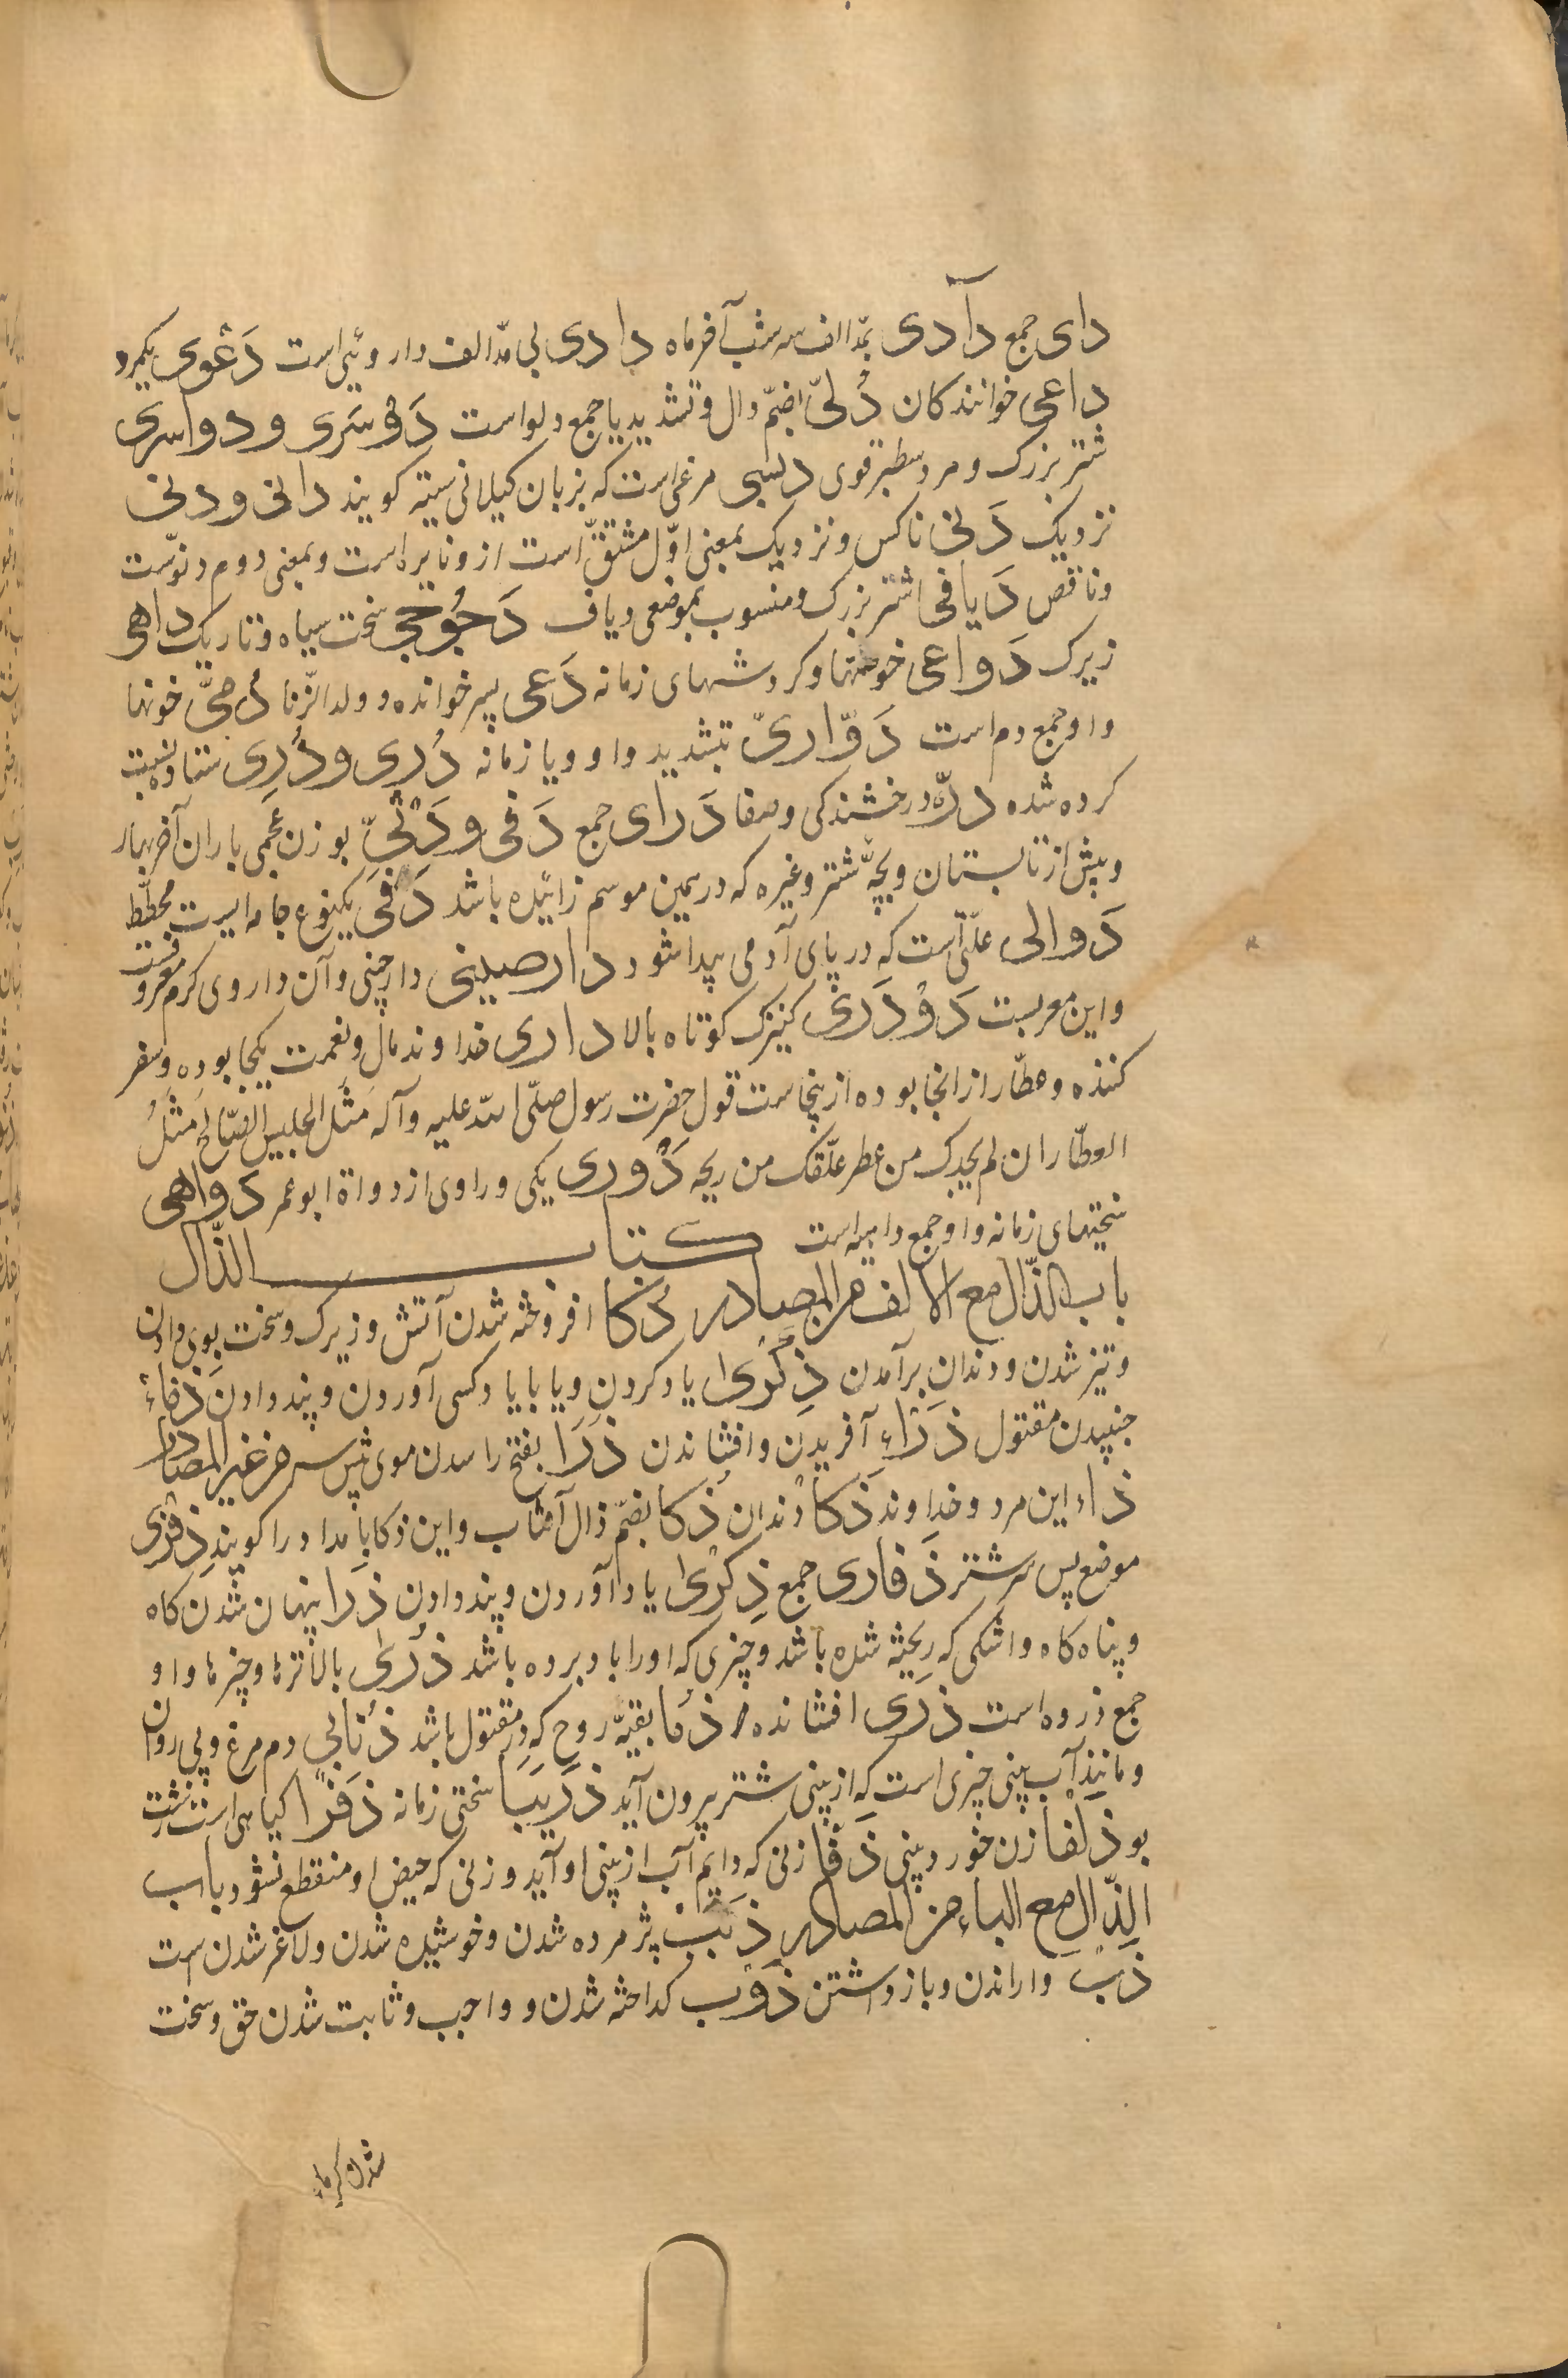 دای جمع دآدی بمدّ الف سه شب آخر ماه دادی بی مدّ الف داروئی است دَعْوی یکمرد
داعی خوانندکان دُلیّ بضمّ دال و تشدید یا جمع دلو است دَوْسَری و دواسری
شتر بزرک و مرد سطبر قوی دبسی مرغی است که بزبان کیلانی سیته کویند دانی و دنی
نزدیک دَنی ناکس و نزدیک بمعنی اوّل مشتقّ است از ونایره است و بمعنی دوم دنوّست
وناقص دَیافی اشتر بزرک و منسوب بموضعی ویاف دَجُوجی سخت سیاه و تاریک داهی
زیرک دَواعی خوهنها و کردشهای زمانه دَعی پسر خوانده و ولد الزّنا دُمیّ خونها
واو جمع دم است دَوّاریّ تبشدید واو ویا زمانه دُری و دُرِی ستاره نسبت
کرده شده درّه درخشندکی وصفا دَرای جمع دَفی و دَثَئیّ بوزن عجمی باران آخر بهار
وپیش از تابستان و بچّه شتر وغیره که در همین موسم زائیده باشد دَفَی یکنوع جامه ایست مخطّط
دَوالی علّتی است که در پای آدمی پیدا شود دارصینی دارچینی وآن داروی کرم معروفست
واین معربست دَوْدَری کنیزک کوتاه بالا داری خداوند مال و نعمت یکجا بوده وسفر
کننده وعطّار از انجا بوده از ینجاست قول حضرت رسول صلّی الله علیه وآله مَثَل الجلیس الصّالح مَثَلُ
العطّار ان لم یجدک من عطر علّقک من ریحه دُوری یکی و راوی از دواة ابوعمر دواهی
سختیهای زمانه واو جمع داهیه است کتاب الذّال
باب الذّال مع الالف من المصادر ذکا افروخته شدن آتش و زیرک وسخت بوی دادن
و تیز شدن و دندان برآمدن ذِکْری یاد کردن ویا بایاد کسی آوردن و پند دادن ذَماء
جنبیدن مقتول ذَرَاء آفریدن و افشاندن ذَرَا بفتح را سدن موی پیش سر من غیر المصادر
ذاء این مرد و خداوند ذَکا دندان ذُکا بضمّ ذال آفتاب واین ذکا بامداد را کویند ذِفْری
موضع پس سر شتر ذَفاری جمع ذِکْریٰ یاد آوردن و پند دادن ذَرا پنهان شدن کاه
و پناه کاه واشکی که ریخته شده باشد و چیزی که اورا باد برده باشد ذُریٰ بالاترها و چیزها واو
جمع ذروه است ذَری افشانده ذَما بقیّه روح که در مقتول باشد ذُنابی دم مرغ و پی روان
ومانند آب بینی چیزی است که از بینی شتر بیرون آید ذَرَبَیا سختی زمانه ذَفْرا کیاهی است زشت
بو ذَلفا زن خورد بینی ذَفّا زنی که دائم آب از بینی او آید و زنی که حیض او منقطع نشود باب
الذّال مع الباء من المصادر ذَبَبْ پژمرده شدن و خوشیده شدن ولاغر شدن است
ذَبْ واراندن وباز داشتن ذَوْب کداخته شدن و واجب و ثابت شدن حق وسخت
شدن کرما